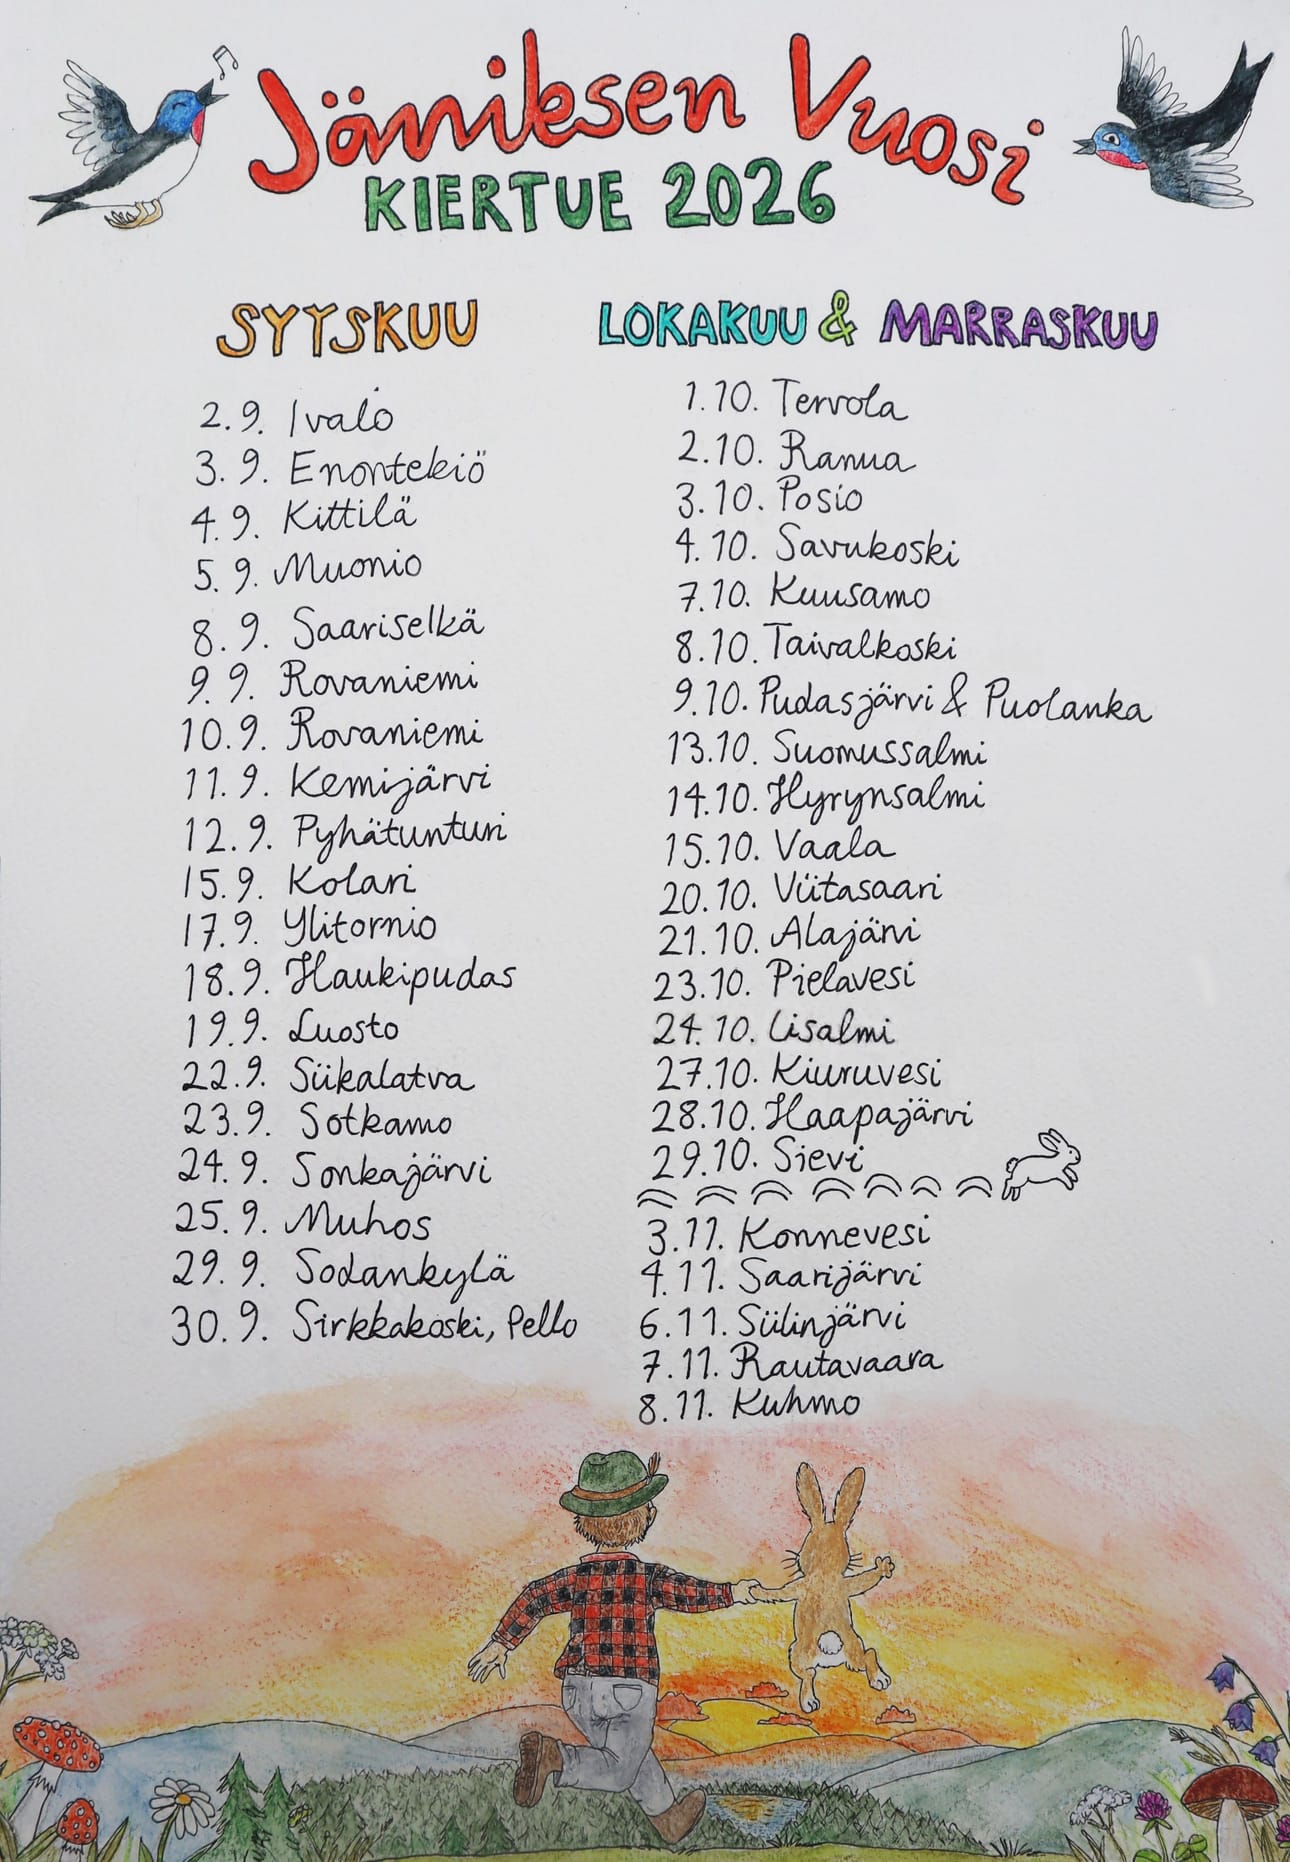 Jäniksen Vuosi
KIERTUE 2026
SYYSKUU
2.9. Ivalo
3.9. Enontekiö
4.9. Kittilä
5.9. Muonio
8.9. Saariselkä
9.9. Rovaniemi
10.9. Rovaniemi
11.9. Kemijärvi
12.9. Pyhätunturi
15.9. Kolari
17.9. Ylitornio
18.9. Haukipudas
19.9. Luosto
22.9. Siikalatva
23.9. Sotkamo
24.9. Sonkajärvi
25.9. Muhos
29.9. Sodankylä
30.9. Sirkkakoski, Pello
LOKAKUU & MARRASKUU
1.10. Tervola
2.10. Ranua
3.10. Posio
4.10. Savukoski
7.10. Kuusamo
8.10. Taivalkoski
9.10. Pudasjärvi & Puolanka
13.10. Suomussalmi
14.10. Hyrynsalmi
15.10. Vaala
20.10. Viitasaari
21.10. Alajärvi
23.10. Pielavesi
24.10. Iisalmi
27.10. Kiuruvesi
28.10. Haapajärvi
29.10. Sievi
3.11. Konnevesi
4.11. Saarijärvi
6.11. Siilinjärvi
7.11. Rautavaara
8.11. Kuhmo